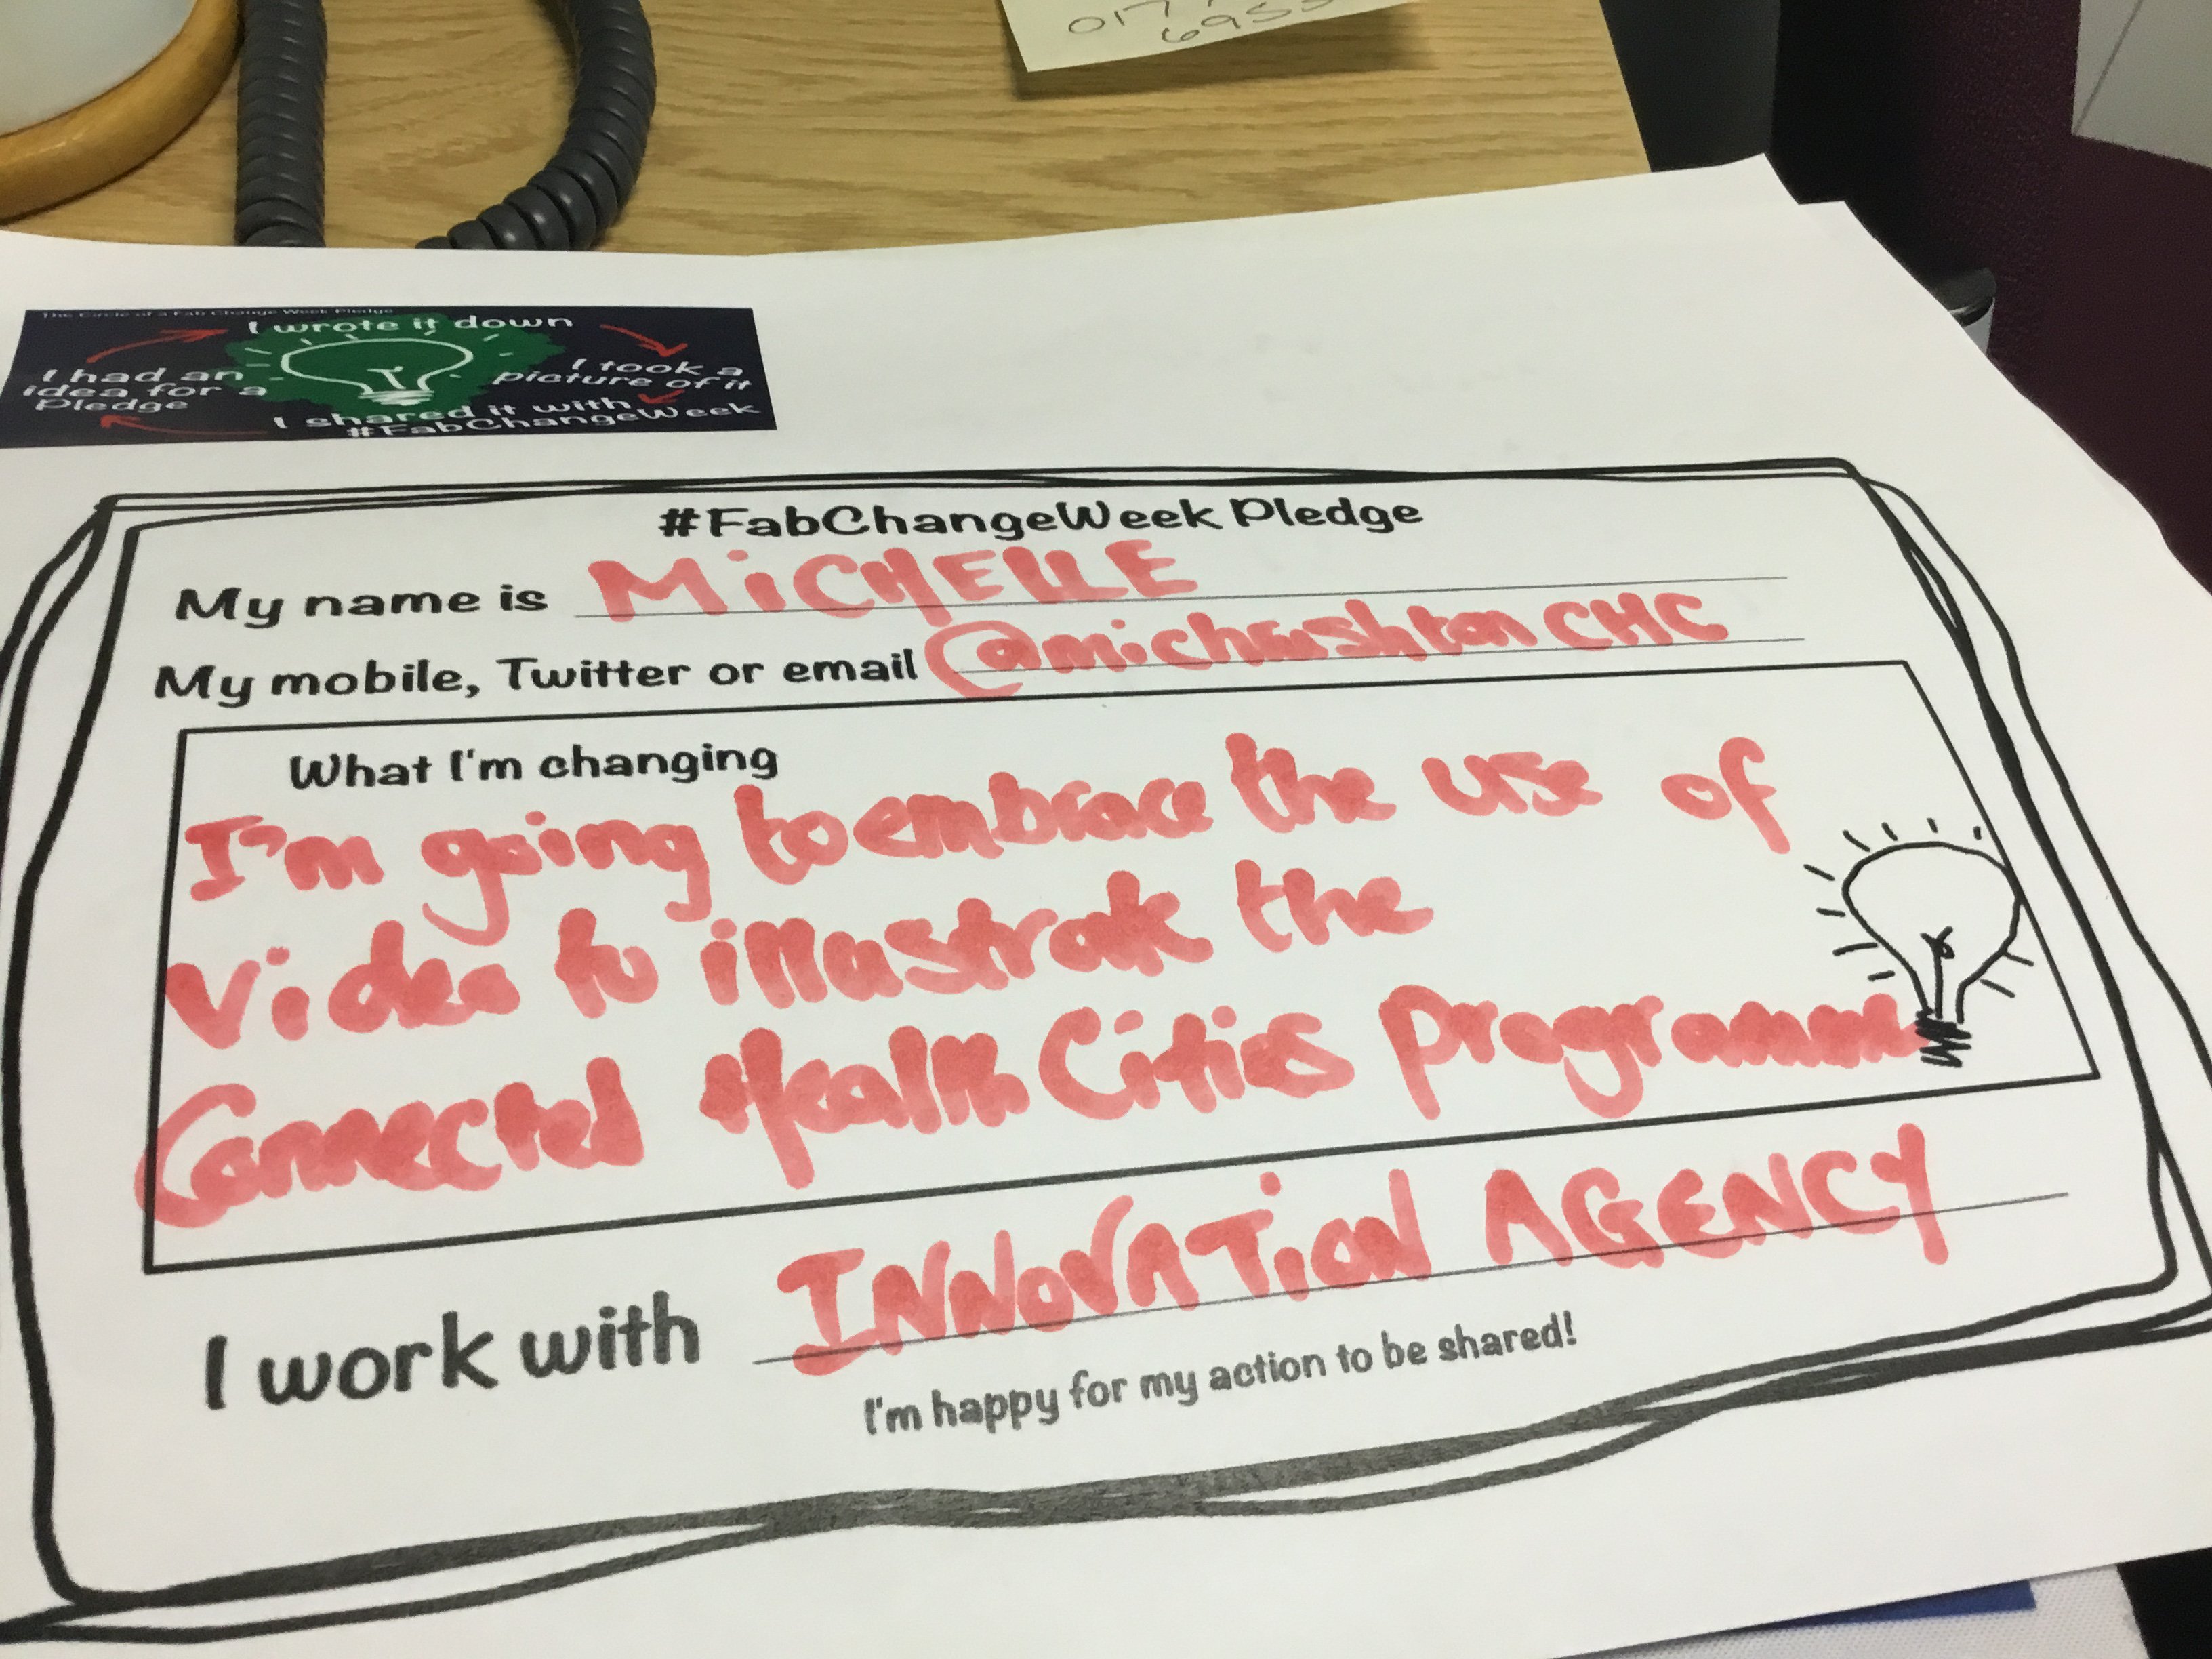 6955
The Circle of a Fab Change Week Pledge
I wrote it down
I took a
picture of it
I shared it with
#FabChangeWeek
I had an
idea for a
Pledge
#FabChangeWeek Pledge
My name is MiCHELLE
My mobile, Twitter or email
What I'm changing
I'm going to embrace the use of
Video to illustrate the
Connected Health Cities Programme
I work with INNOVATiON AGENCY
I'm happy for my action to be shared!